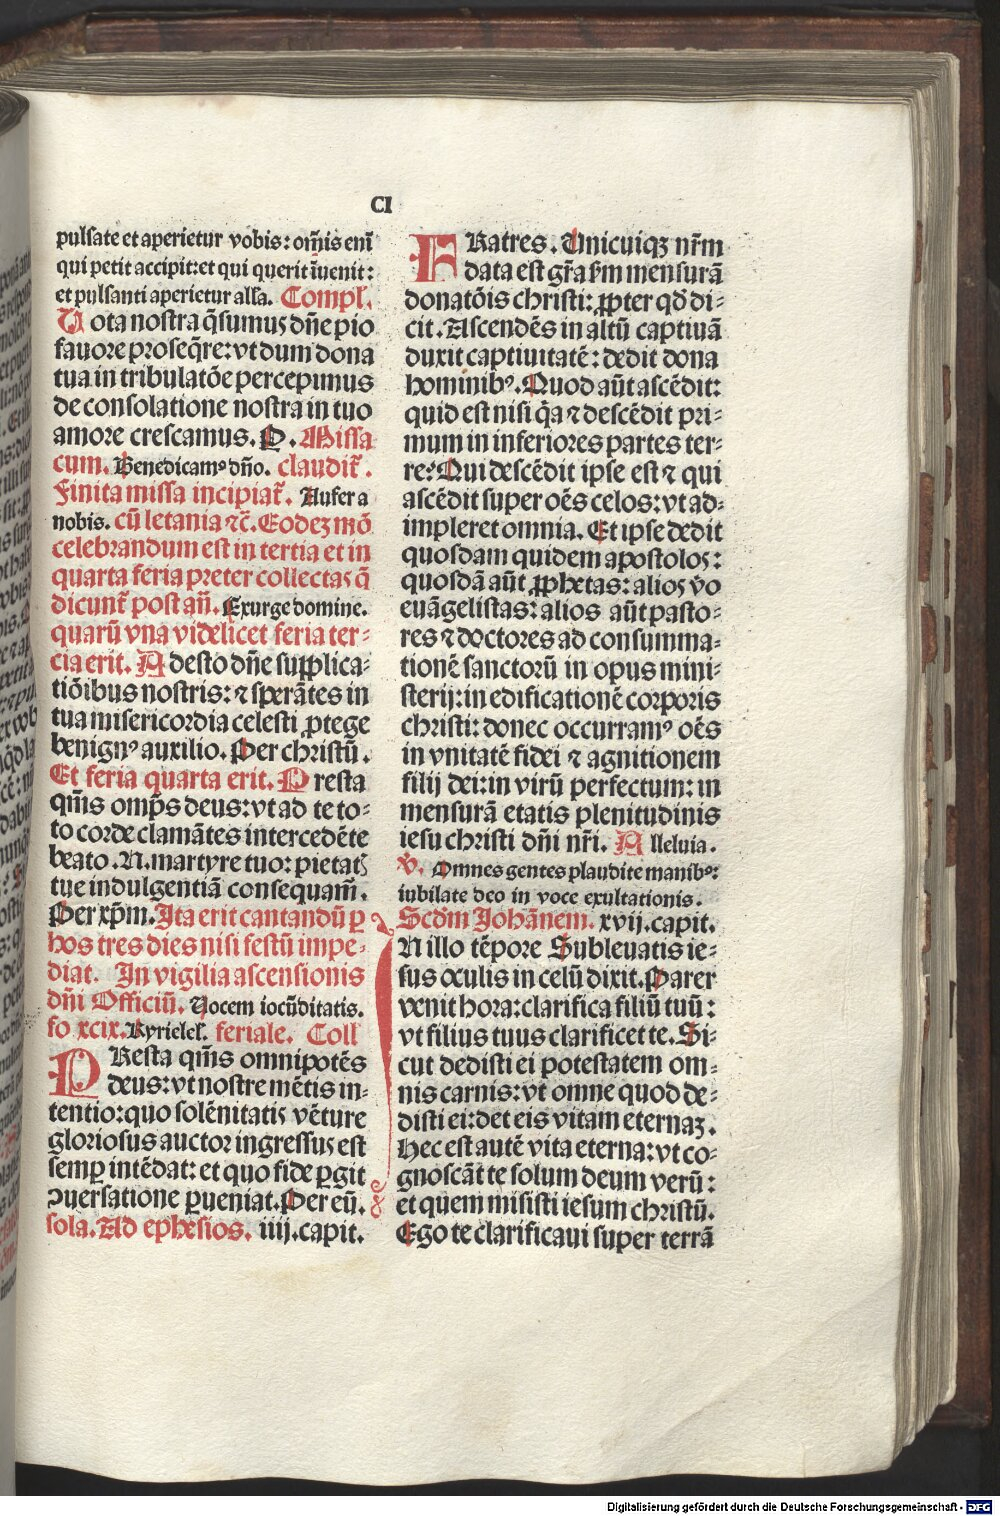 CI
pulsate et aperietur vobis: om̄is enī
qui petit accipit: et qui querit īuenit:
et pulsanti aperietur alľa. Compl.
Uota nostra q̄sumus dn̄e pio
fauore proseq̄re: vt dum dona
tua in tribulatōe percepimus
de consolatione nostra in tuo
amore crescamus. P. Missa
cum. Benedicamꝰ dn̄o. claudit̄.
Finita missa incipiat̄. Aufer a
nobis. cū letania ⁊c̄. Eodez mō
celebrandum est in tertia et in
quarta feria preter collectas q̄
dicunt̄ post an̄. Exurge domine.
quarū vna videlicet feria ter-
cia erit. Adesto dn̄e supplica-
tiōibus nostris: ⁊ sperātes in
tua misericordia celesti ꝓtege
benignꝰ auxilio. Per christū.
Et feria quarta erit. Presta
qm̄s omp̄s deus: vt ad te to-
to corde clamātes intercedēte
beato .N. martyre tuo: pietatꝭ
tue indulgentiā consequam̄.
Per xp̄m. Ita erit cantandū ꝑ
hos tres dies nisi festū impe-
diat. In vigilia ascensionis
dn̄i Officiū. Vocem iocūditatis.
fo xcix. Kyrielel̄. feriale. Coll
PResta qm̄s omnipotēs
deus: vt nostre mētis in-
tentio: quo solēnitatis vēture
gloriosus auctor ingressus est
semꝑ intēdat: et quo fide ꝑgit
ꝯuersatione ꝑueniat. Per eū.
sola. Ad ephesios. iiij. capit.
FRatres. Unicuiqꝫ nr̄m
data est gr̄a ẜm mensurā
donatōis christi: ꝓpter qđ di-
cit. Ascendēs in altū captiuā
duxit captiuitatē: dedit dona
hominibꝰ. Quod aūt ascēdit:
quid est nisi q̄a ⁊ descēdit pri-
mum in inferiores partes ter-
re? Qui descēdit ipse est ⁊ qui
ascēdit super oēs celos: vt ad-
impleret omnia. Et ipse dedit
quosdam quidem apostolos:
quosdā aūt ꝓphetas: alios v̄o
euāgelistas: alios aūt pasto-
res ⁊ doctores ad consumma-
tionē sanctorū in opus mini-
sterij: in edificationē corporis
christi: donec occurramꝰ oēs
in vnitatē fidei ⁊ agnitionem
filij dei: in virū perfectum: in
mensurā etatis plenitudinis
iesu christi dn̄i nr̄i. Alleluia.
℣. Omnes gentes plaudite manibꝰ:
iubilate deo in voce exultationis.
Scd̄m Johānem. xvij. capit.
IN illo tēpore Subleuatis ie-
sus oculis in celū dixit. Parer
venit hora: clarifica filiū tuū:
vt filius tuus clarificet te. Si-
cut dedisti ei potestatem om-
nis carnis: vt omne quod de-
disti ei: det eis vitam eternaꝫ.
Hec est autē vita eterna: vt co-
gnoscāt te solum deum verū:
et quem misisti iesum christū.
Ego te clarificaui super terrā
Digitalisierung gefördert durch die Deutsche Forschungsgemeinschaft - DFG